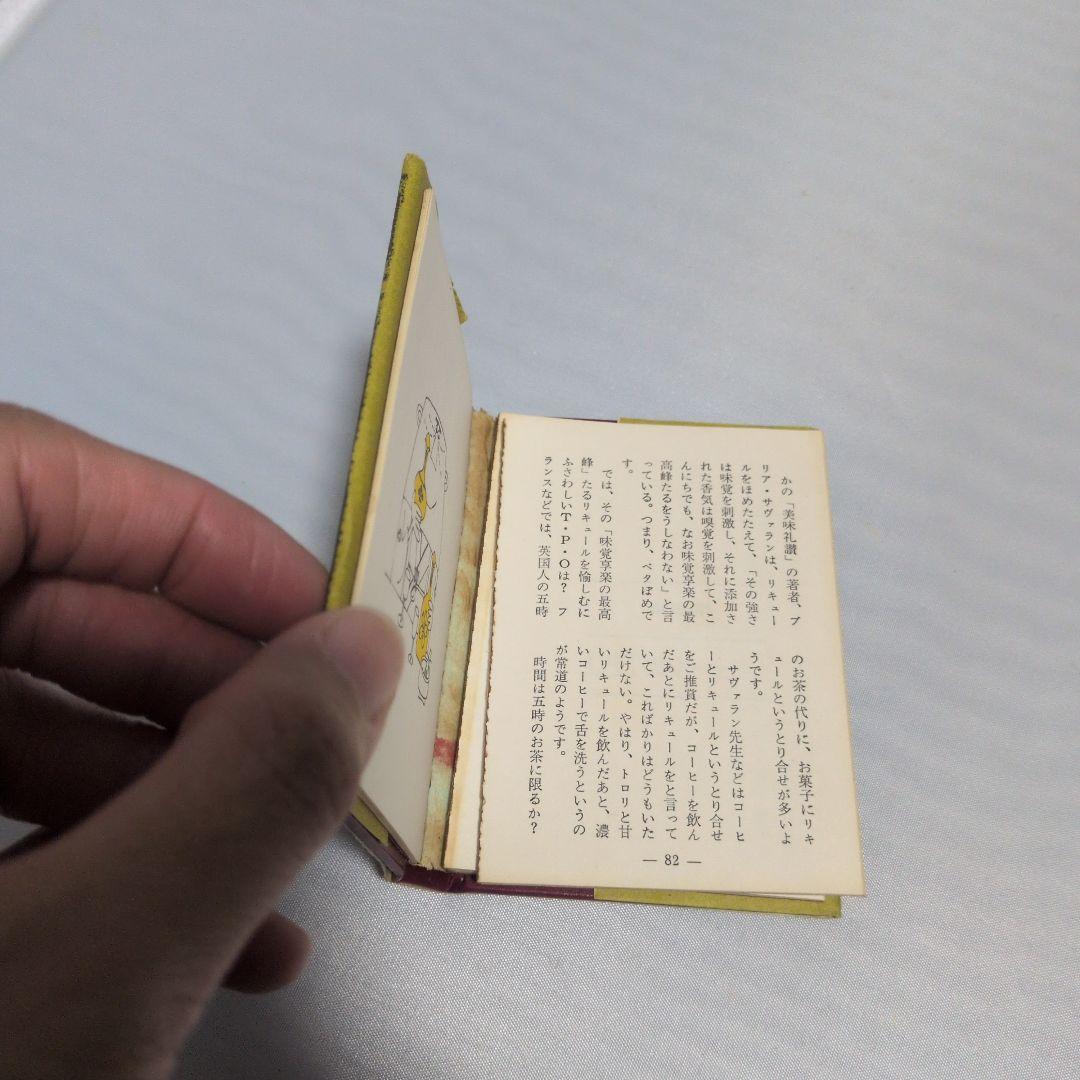 かの「美味礼讃」の著者、ブ
リア・サヴァランは、リキュー
ルをほめたたえて、「その強さ
は味覚を刺激し、それに添加さ
れた香気は嗅覚を刺激して、こ
んにちでも、なお味覚享楽の最
高峰たるをうしなわない」と言
っている。つまり、ベタぼめで
す。
では、その「味覚享楽の最高
峰」たるリキュールを愉しむに
ふさわしいT・P・Oは? フ
ランスなどでは、英国人の五時
のお茶の代りに、お菓子にリキ
ュールというとり合せが多いよ
うです。
サヴァラン先生などはコーヒ
ーとリキュールというとり合せ
をご推賞だが、コーヒーを飲ん
だあとにリキュールをと言って
いて、こればかりはどうもいた
だけない。やはり、トロリと甘
いリキュールを飲んだあと、濃
いコーヒーで舌を洗うというの
が常道のようです。
時間は五時のお茶に限るか?
— 82 —